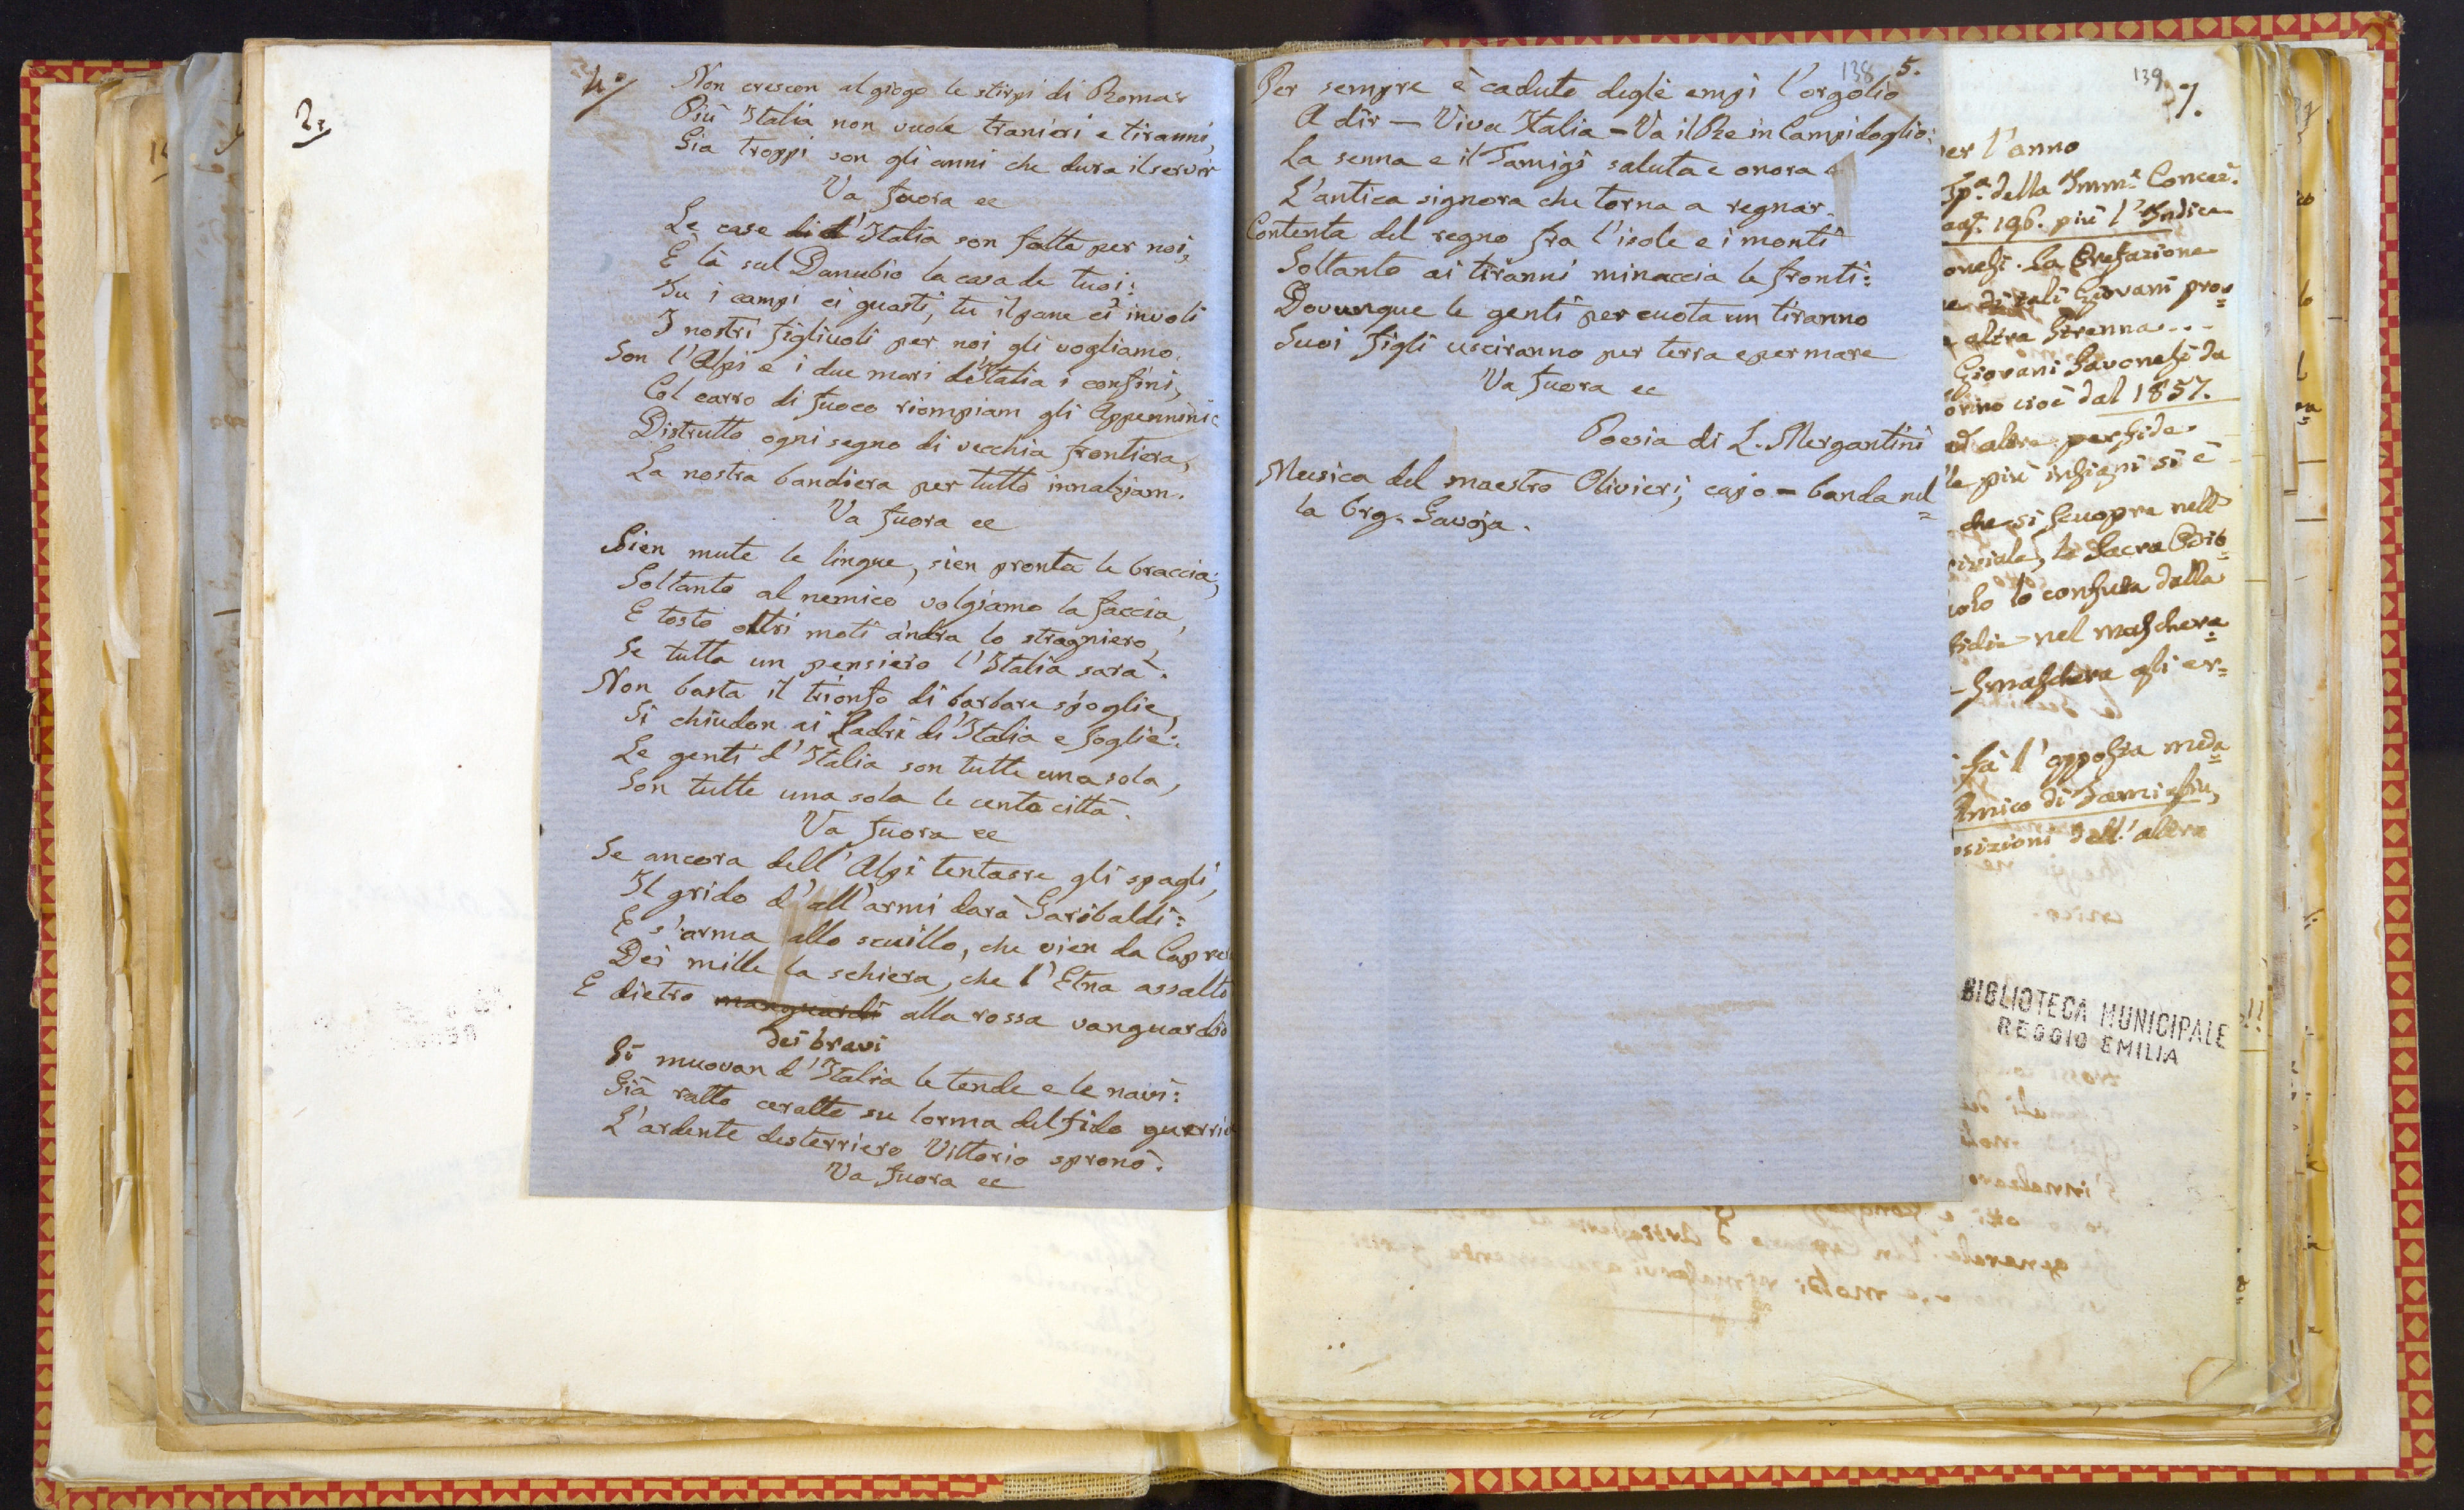 2.
4.
Non crescon al giogo le stirpi di Roma
Più Italia non vuole tranieri e tiranni,
Già troppi son gli anni che dura il servir
Va fuora ec
Le case d'Italia son fatte per noi,
E là sul Danubio la casa de tuoi:
Tu i campi ci guasti, tu il pane ci involi
I nostri figliuoli per noi gli vogliamo.
Son l'Alpi e i due mari d'Italia i confini,
Col carro di fuoco riompiam gli Appennini
Distrutto ogni segno di vecchia frontiera,
La nostra bandiera per tutto innalziam.
Va fuora ec
Sien mute le lingue, sien pronta le braccia;
Soltanto al nemico volgiamo la faccia,
E tosto oltri moti andra lo stragniero,
Se tutta un pensiero l'Italia sarà.
Non basta il trionfo di barbare spoglie,
Si chiudon ai Ladri d'Italia e soglie:
Le genti d'Italia son tutte una sola,
Son tutte una sola le cento città.
Va fuora ec
Se ancora dell'Alpi tentasse gli spagli,
Il grido d'all'armi darà Garibaldi:
E s'arma allo scuillo, che vien da Caprer
Dei mille la schiera, che l'Etna assaltò
E dietro manguardi alla rossa vanguardia
dei bravi
Si muovan d'Italia le tende e le navi:
Già ratto ceratto su lorma del fido guerrie
L'ardente desterriero Vittorio spronò.
Va fuora ec
138 5.
Per sempre è caduto degli empi l'orgolio
A dir — Viva Italia — Va il Re in Campidoglio:
La senna e il Tamigi saluta e onora
L'antica signora che torna a regnar.
Contenta del regno fra l'isole e i monti
Soltanto ai tiranni minaccia le fronti:
Dovunque le genti percuota un tiranno
Suoi figli usciranno per terra e per mare
Va fuora ec
Poesia di L. Mergantini
Musica del maestro Olivieri, capo-banda nel=
la brg. Savoja.
139 7.
per l'anno
Tip.a della Imm.a Concez.
pag. 196. più l'Indice
onesi. La Prefazione
di tali Giovani pro=
altra Strenna...
Giovani Savonesi da
orino cioè dal 1857.
ed altre perfide
le più insigni si è
che si scuopre nell
la Sacra Scrit=
lo confuta dalla
fidie nel maschera=
smaschera gli er=
fa l'apposta meda=
Amico di Famiglia,
osizioni dell'altra
BIBLIOTECA MUNICIPALE
REGGIO EMILIA